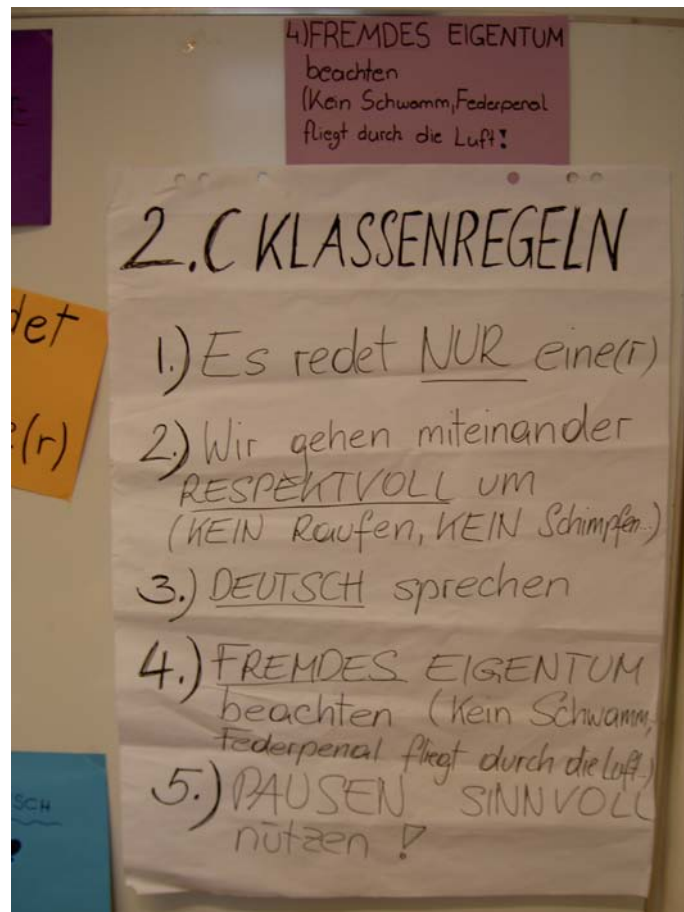 4)FREMDES EIGENTUM
beachten
(Kein Schwamm, Federpenal
fliegt durch die Luft!
2.C KLASSENREGELN
1.) Es redet NUR eine(r)
2.) Wir gehen miteinander
RESPEKTVOLL um
(KEIN Raufen, KEIN Schimpfen...)
3.) DEUTSCH sprechen
4.) FREMDES EIGENTUM
beachten (Kein Schwamm,
Federpenal fliegt durch die Luft.)
5.) PAUSEN SINNVOLL
nützen!
det
e(r)
SCH